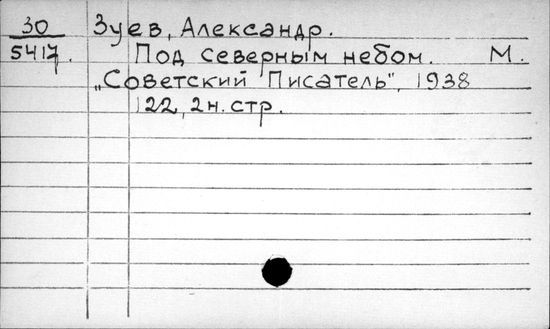 30 Зуев, Александр.
5417. Под северным небом. М.
„Советский Писатель", 1938
122, 2н. стр.